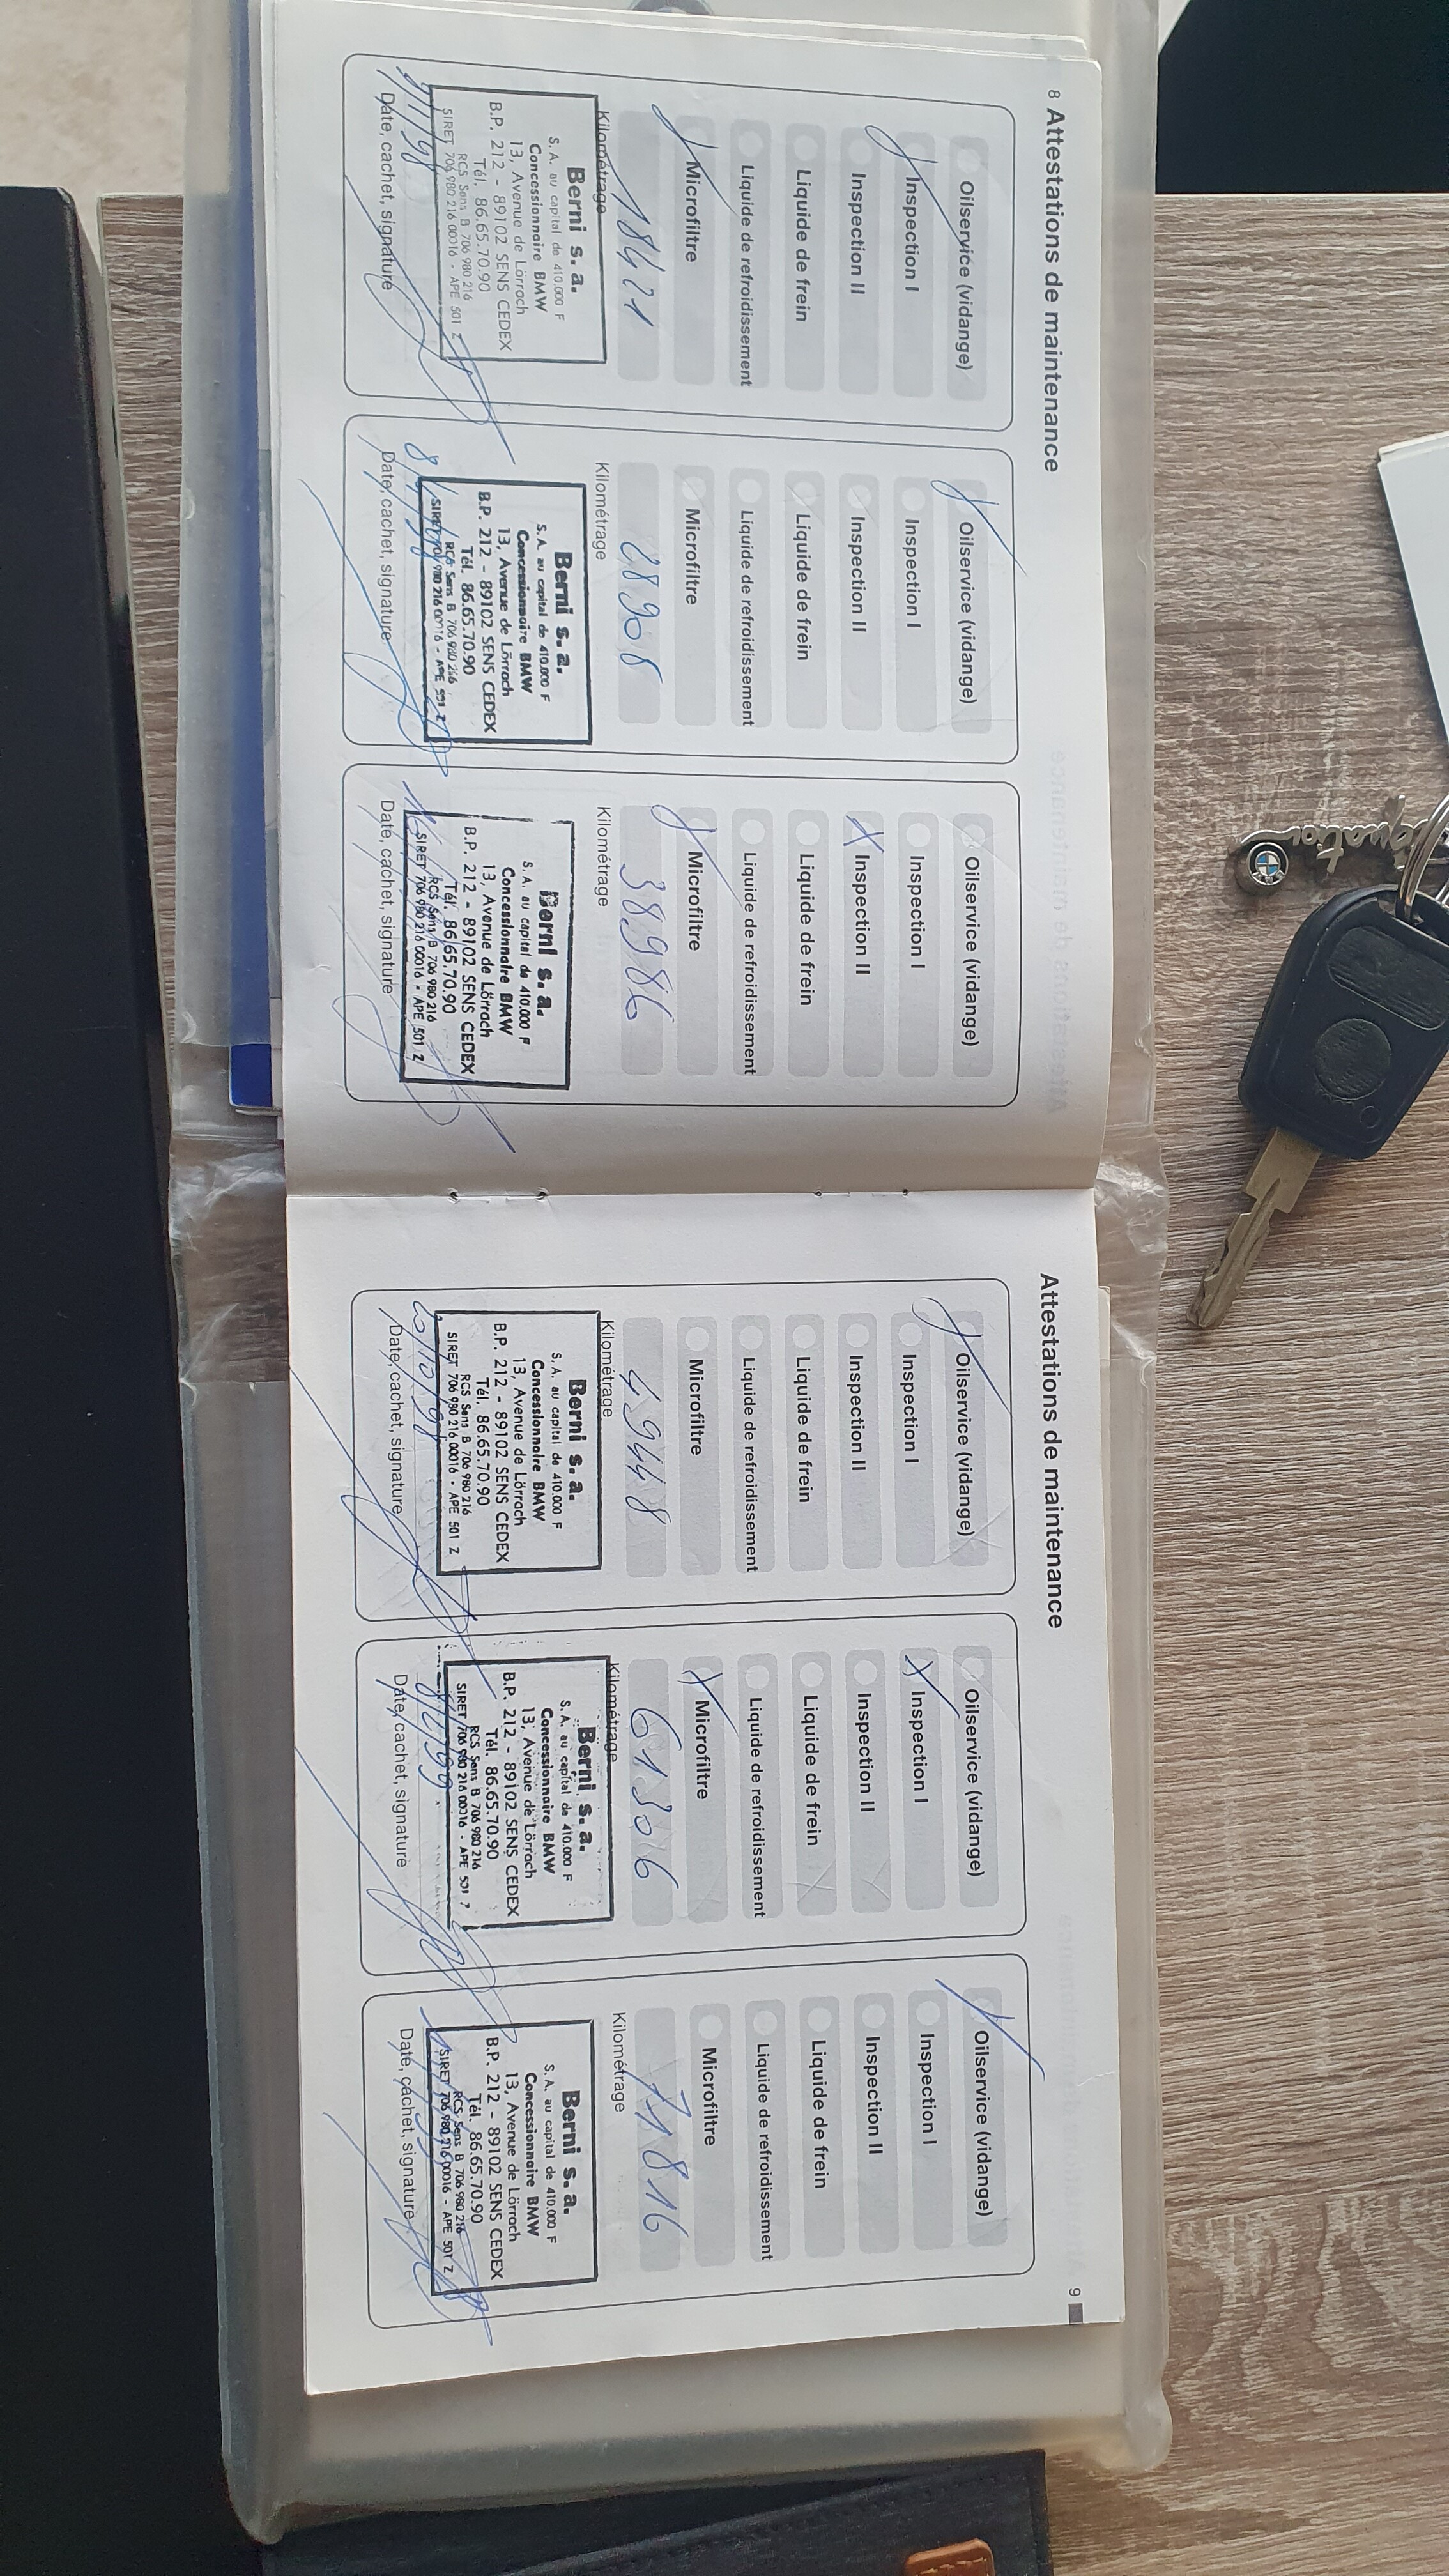 8 Attestations de maintenance
Oilservice (vidange)
Inspection I
Inspection II
Liquide de frein
Liquide de refroidissement
Microfiltre
18421
Kilométrage
Berni s. a.
S. A. au capital de 410.000 F
Concessionnaire BMW
13, Avenue de Lörrach
B.P. 212 - 89102 SENS CEDEX
Tél. 86.65.70.90
RCS Sens B 706 980 216
SIRET 706 980 216 00016 - APE 501 Z
Date, cachet, signature
Oilservice (vidange)
Inspection I
Inspection II
Liquide de frein
Liquide de refroidissement
Microfiltre
28908
Kilométrage
Berni s. a.
S. A. au capital de 410.000 F
Concessionnaire BMW
13, Avenue de Lörrach
B.P. 212 - 89102 SENS CEDEX
Tél. 86.65.70.90
RCS Sens B 706 980 216
SIRET 706 980 216 00016 - APE 501 Z
Date, cachet, signature
Oilservice (vidange)
Inspection I
Inspection II
Liquide de frein
Liquide de refroidissement
Microfiltre
38986
Kilométrage
Berni s. a.
S. A. au capital de 410.000 F
Concessionnaire BMW
13, Avenue de Lörrach
B.P. 212 - 89102 SENS CEDEX
Tél. 86.65.70.90
RCS Sens B 706 980 216
SIRET 706 980 216 00016 - APE 501 Z
Date, cachet, signature
Attestations de maintenance 9
Oilservice (vidange)
Inspection I
Inspection II
Liquide de frein
Liquide de refroidissement
Microfiltre
49448
Kilométrage
Berni s. a.
S. A. au capital de 410.000 F
Concessionnaire BMW
13, Avenue de Lörrach
B.P. 212 - 89102 SENS CEDEX
Tél. 86.65.70.90
RCS Sens B 706 980 216
SIRET 706 980 216 00016 - APE 501 Z
Date, cachet, signature
Oilservice (vidange)
Inspection I
Inspection II
Liquide de frein
Liquide de refroidissement
Microfiltre
61306
Kilométrage
Berni s. a.
S. A. au capital de 410.000 F
Concessionnaire BMW
13, Avenue de Lörrach
B.P. 212 - 89102 SENS CEDEX
Tél. 86.65.70.90
RCS Sens B 706 980 216
SIRET 706 980 216 00016 - APE 501
Date, cachet, signature
Oilservice (vidange)
Inspection I
Inspection II
Liquide de frein
Liquide de refroidissement
Microfiltre
71816
Kilométrage
Berni s. a.
S. A. au capital de 410.000 F
Concessionnaire BMW
13, Avenue de Lörrach
B.P. 212 - 89102 SENS CEDEX
Tél. 86.65.70.90
RCS Sens B 706 980 216
SIRET 706 980 216 00016 - APE 501 Z
Date, cachet, signature